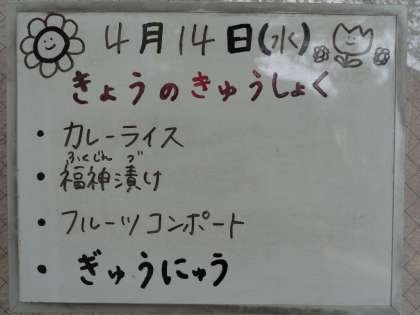 4月14日(水)
きょうのきゅうしょく
・カレーライス
ふくじん づ
・福神漬け
・フルーツコンポート
・ぎゅうにゅう